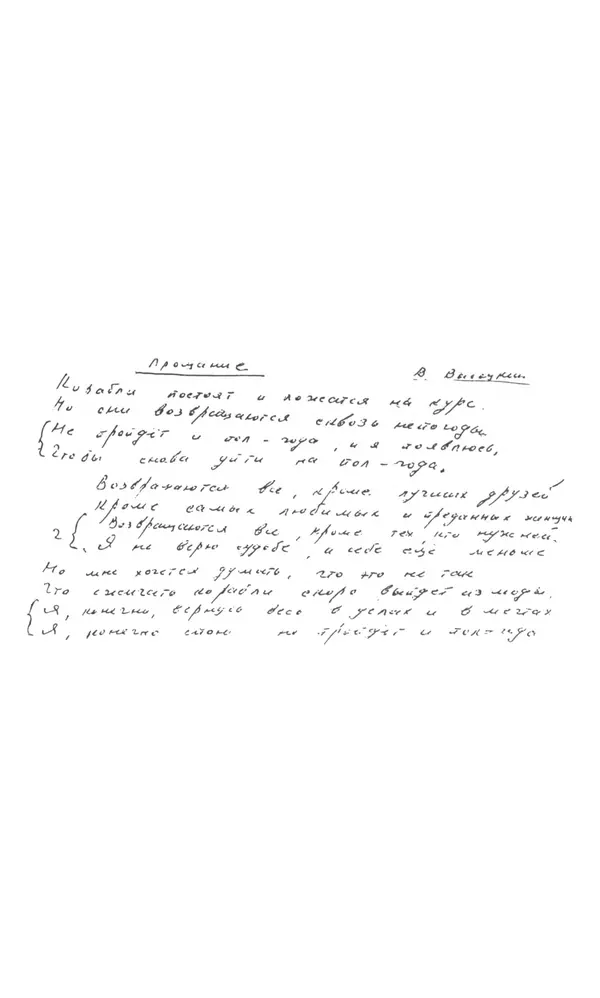 Прощание В. Высоцкий
Корабли постоят и ложатся на курс.
Но они возвращаются сквозь непогоды
Не пройдёт и пол-года, и я появлюсь,
Чтобы снова уйти на пол-года.
Возвращаются все, кроме лучших друзей
Кроме самых любимых и преданных женщин
2 Возвращаются все, кроме тех, кто нужней.
Я не верю судьбе, и себе ещё меньше
Но мне хочется думать, что это не так
Что сжигать корабли скоро выйдет из моды.
Я, конечно, вернусь весь в делах и в мечтах
Я, конечно спою не пройдёт и пол-года